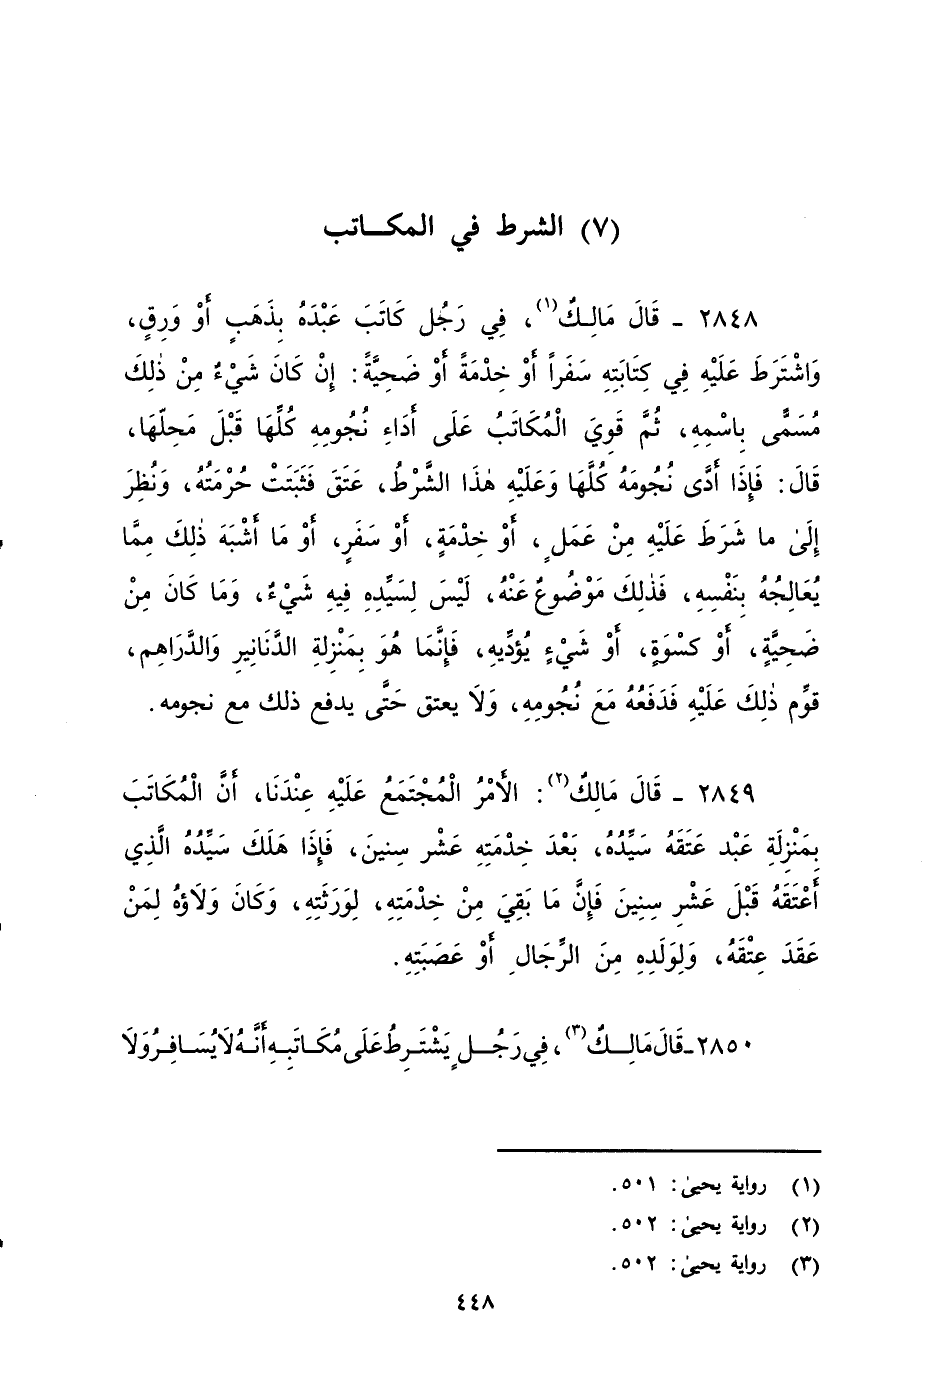 (٧) الشرط في المكاتب
٢٨٤٨ - قَالَ مَالِكٌ(١)، فِي رَجُل كَاتَبَ عَبْدَهُ بِذَهَبٍ أَوْ وَرِقٍ،
وَاشْتَرَطَ عَلَيْهِ فِي كِتَابَتِهِ سَفَراً أَوْ خِدْمَةً أَوْ ضَحِيَّةً: إِنْ كَانَ شَيْءٌ مِنْ ذٰلِكَ
مُسَمًّى بِاسْمِهِ، ثُمَّ قَوِيَ الْمُكَاتَبُ عَلَى أَدَاءِ نُجُومِهِ كُلِّهَا قَبْلَ مَحِلّهَا،
قَالَ: فَإِذَا أَدَّى نُجُومَهُ كُلَّهَا وَعَلَيْهِ هٰذَا الشَّرْطُ، عَتَقَ فَثَبَتَتْ حُرْمَتُهُ، وَنُظِرَ
إِلَىٰ ما شَرَطَ عَلَيْهِ مِنْ عَمَلٍ، أَوْ خِدْمَةٍ، أَوْ سَفَرٍ، أَوْ مَا أَشْبَهَ ذٰلِكَ مِمَّا
يُعَالِجُهُ بِنَفْسِهِ، فَذٰلِكَ مَوْضُوعٌ عَنْهُ، لَيْسَ لِسَيِّدِهِ فِيهِ شَيْءٌ، وَمَا كَانَ مِنْ
ضَحِيَّةٍ، أَوْ كسْوَةٍ، أَوْ شَيْءٍ يُؤدِّيهِ، فَإِنَّمَا هُوَ بِمَنْزِلةِ الدَّنَانِيرِ وَالدَّرَاهِمِ،
قوِّم ذٰلِكَ عَلَيْهِ فَدَفَعُهُ مَعَ نُجُومِهِ، وَلَا يعتق حَتَّى يدفع ذلك مع نجومه.
٢٨٤٩ - قَالَ مَالِكٌ(٢): الأَمْرُ الْمُجْتَمَعُ عَلَيْهِ عِنْدَنَا، أَنَّ الْمُكَاتَبَ
بِمَنْزِلَةِ عَبْدٍ عَتَقَهُ سَيِّدُهُ، بَعْدَ خِدْمَتِهِ عَشْرِ سِنِينَ، فَإِذَا هَلَكَ سَيِّدُهُ الَّذِي
أَعْتَقَهُ قَبْلَ عَشْرِ سِنِينَ فَإِنَّ مَا بَقِيَ مِنْ خِدْمَتِهِ، لِوَرَثَتِهِ، وَكَانَ وَلَاؤهُ لِمَنْ
عَقَدَ عِتْقَهُ، وَلِوَلَدِهِ مِنَ الرِّجَالِ أَوْ عَصَبَتِهِ.
٢٨٥٠ - قَالَ مَالِكٌ(٣)، فِي رَجُلٍ يَشْتَرِطُ عَلَى مُكَاتَبِهِ أَنَّهُ لَا يُسَافِرُ وَلَا
(١) رواية يحيىٰ: ٥٠١.
(٢) رواية يحيىٰ: ٥٠٢.
(٣) رواية يحيىٰ: ٥٠٢.
٤٤٨